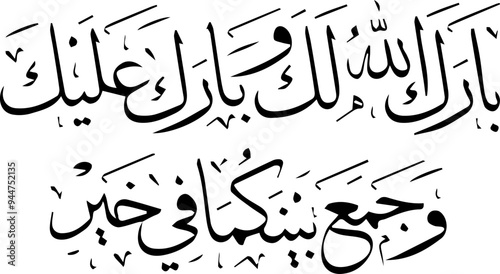 بارك الله لك وبارك عليك
وجمع بينكما في خير
Adobe Stock | #944752135